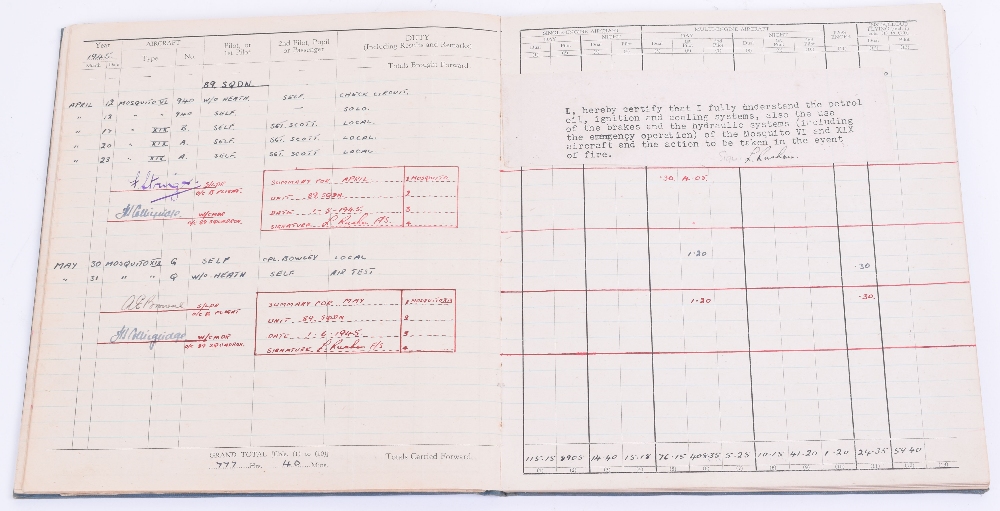 Year
AIRCRAFT
Pilot, or
1st Pilot
2nd Pilot, Pupil
or Passenger
DUTY
(Including Results and Remarks)
1945
Type
No.
Totals Brought Forward
89 SQDN
APRIL 12 MOSQUITO VI 940 W/O HEATH. SELF. CHECK CIRCUIT.
" 12 " " 940 SELF. — SOLO.
" 17 " XIX B. SELF. SGT. SCOTT. LOCAL.
" 20 " XIX A. SELF. SGT. SCOTT. LOCAL.
" 23 " XIX A. SELF. SGT SCOTT LOCAL
S/LDR
O/C B FLIGHT.
W/CMDR
O/C 89 SQUADRON.
SUMMARY FOR APRIL 1 MOSQUITO
UNIT 89 SQDN 2
DATE 1-5-1945. 3
SIGNATURE 4
MAY 30 MOSQUITO XIX G SELF CPL. ROWLEY LOCAL
" 31 " " G W/O HEATH SELF AIR TEST
S/LDR
O/C B FLIGHT
W/CMDR
O/C 89 SQUADRON.
SUMMARY FOR MAY 1 MOSQUITO
UNIT 89 SQDN 2
DATE 1-6-1945 3
SIGNATURE 4
GRAND TOTAL [Cols. (1) to (10)]
777 Hrs. 40 Mins.
Totals Carried Forward
SINGLE-ENGINE AIRCRAFT
MULTI-ENGINE AIRCRAFT
DAY
NIGHT
DAY
NIGHT
I, hereby certify that I fully understand the petrol
oil, ignition and cooling systems, also the use
of the brakes and the hydraulic systems (including
the emergency operation) of the Mosquito VI and XIX
aircraft and the action to be taken in the event
of fire.
.30 4.05
1.20
.30
1.20 .30
115.15 8905 14.40 15.18 76.15 408.35 5.25 10.15 41.20 1.20 24.35 59.40